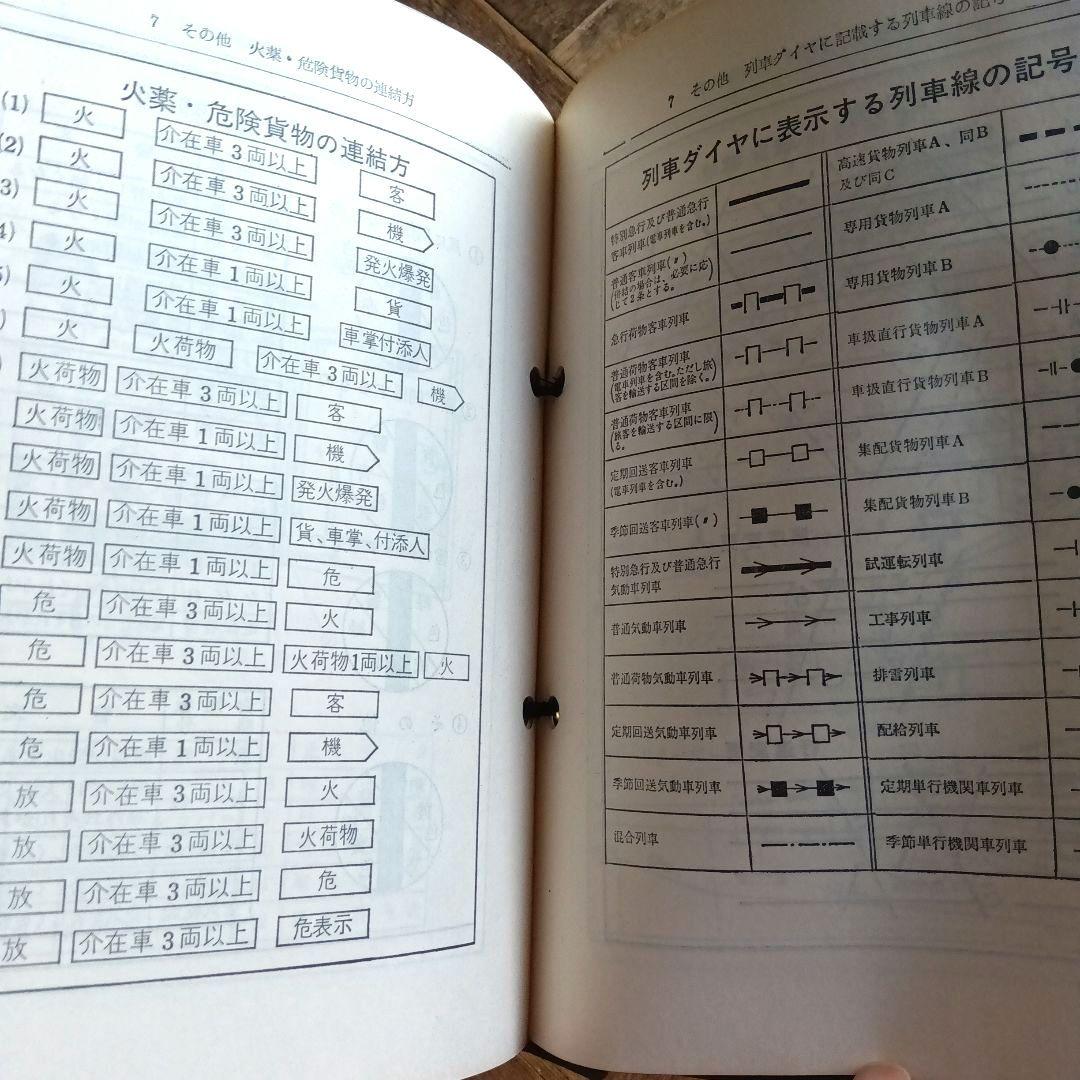 7　その他　火薬・危険貨物の連結方
火薬・危険貨物の連結方
(1) 火 介在車3両以上 客
(2) 火 介在車3両以上 機
3) 火 介在車3両以上 発火爆発
4) 火 介在車1両以上 貨
5) 火 介在車1両以上 車掌付添人
) 火 火荷物 介在車3両以上 機
火荷物 介在車3両以上 客
火荷物 介在車1両以上 機
火荷物 介在車1両以上 発火爆発
火荷物 介在車1両以上 貨、車掌、付添人
火荷物 介在車1両以上 危
危 介在車3両以上 火
危 介在車3両以上 火荷物1両以上 火
危 介在車3両以上 客
危 介在車1両以上 機
放 介在車3両以上 火
放 介在車3両以上 火荷物
放 介在車3両以上 危
放 介在車3両以上 危表示
7　その他　列車ダイヤに記載する列車線の記号
列車ダイヤに表示する列車線の記号
特別急行及び普通急行
客車列車(電車列車を含む。)
普通客車列車(〃)
(併結の場合は、必要に応
じて2条とする。)
急行荷物客車列車
普通荷物客車列車
(電車列車を含む。ただし旅
客を輸送する区間を除く。)
普通荷物客車列車
(旅客を輸送する区間に限
る。)
定期回送客車列車
(電車列車を含む。)
季節回送客車列車(〃)
特別急行及び普通急行
気動車列車
普通気動車列車
普通荷物気動車列車
定期回送気動車列車
季節回送気動車列車
混合列車
高速貨物列車A、同B
及び同C
専用貨物列車A
専用貨物列車B
車扱直行貨物列車A
車扱直行貨物列車B
集配貨物列車A
集配貨物列車B
試運転列車
工事列車
排雪列車
配給列車
定期単行機関車列車
季節単行機関車列車